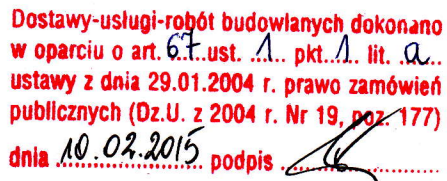 Dostawy-usługi-robót budowlanych dokonano
w oparciu o art. 67 ust. 1 pkt. 1 lit. a
ustawy z dnia 29.01.2004 r. prawo zamówień
publicznych (Dz.U. z 2004 r. Nr 19, poz. 177)
dnia 10.02.2015 podpis